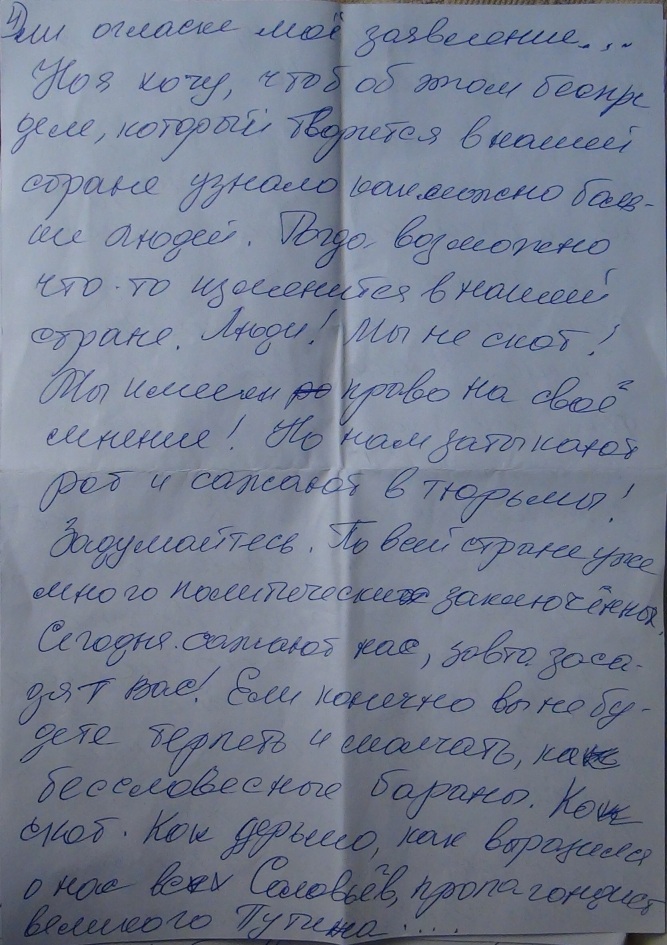 4)
ли огласке моё заявление...
Но я хочу, чтоб об этом беспре
деле, который творится в нашей
стране узнало как можно боль-
ше людей. Тогда возможно
что-то изменится в нашей
стране. Люди! Мы не скот!
Мы имеем право на своё
мнение! Но нам затыкают
рот и сажают в тюрьмы!
Задумайтесь. По всей стране уже
много политических заключённых.
Сегодня сажают нас, завто заса-
дят вас! Если конечно вы не бу-
дете терпеть и молчать, как
бессловесные бараны. Как
скот. Как дерьмо, как выразился
о нас всех Соловьёв, пропагандист
великого Путина....